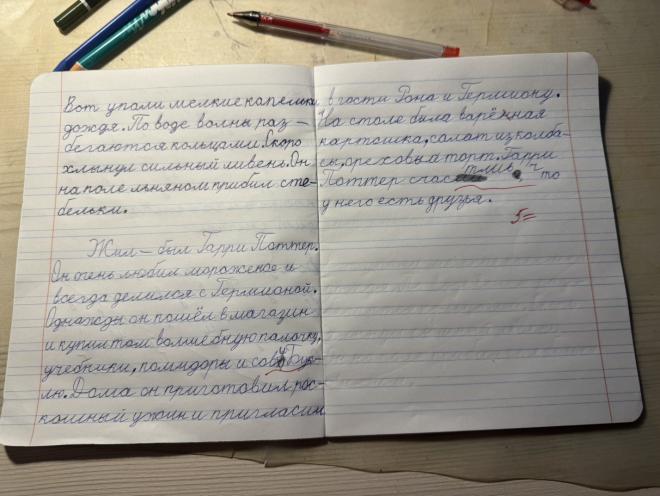 Вот упали мелкие капельки
дождя. По воде волны раз-
бегаются кольцами. Скоро
хлынул сильный ливень. Он
на поле льняном прибил сте-
бельки.
Жил-был Гарри Поттер.
Он очень любил мороженое и
всегда делился с Гермионой.
Однажды он пошёл в магазин
и купил там волшебную палочку,
учебники, помидоры и сову Бук-
лю. Дома он приготовил рос-
кошный ужин и пригласил
в гости Рона и Гермиону.
На столе была варёная
картошка, салат из колба-
сы, ореховый торт. Гарри
Поттер счастлив, что
у него есть друзья.
5=